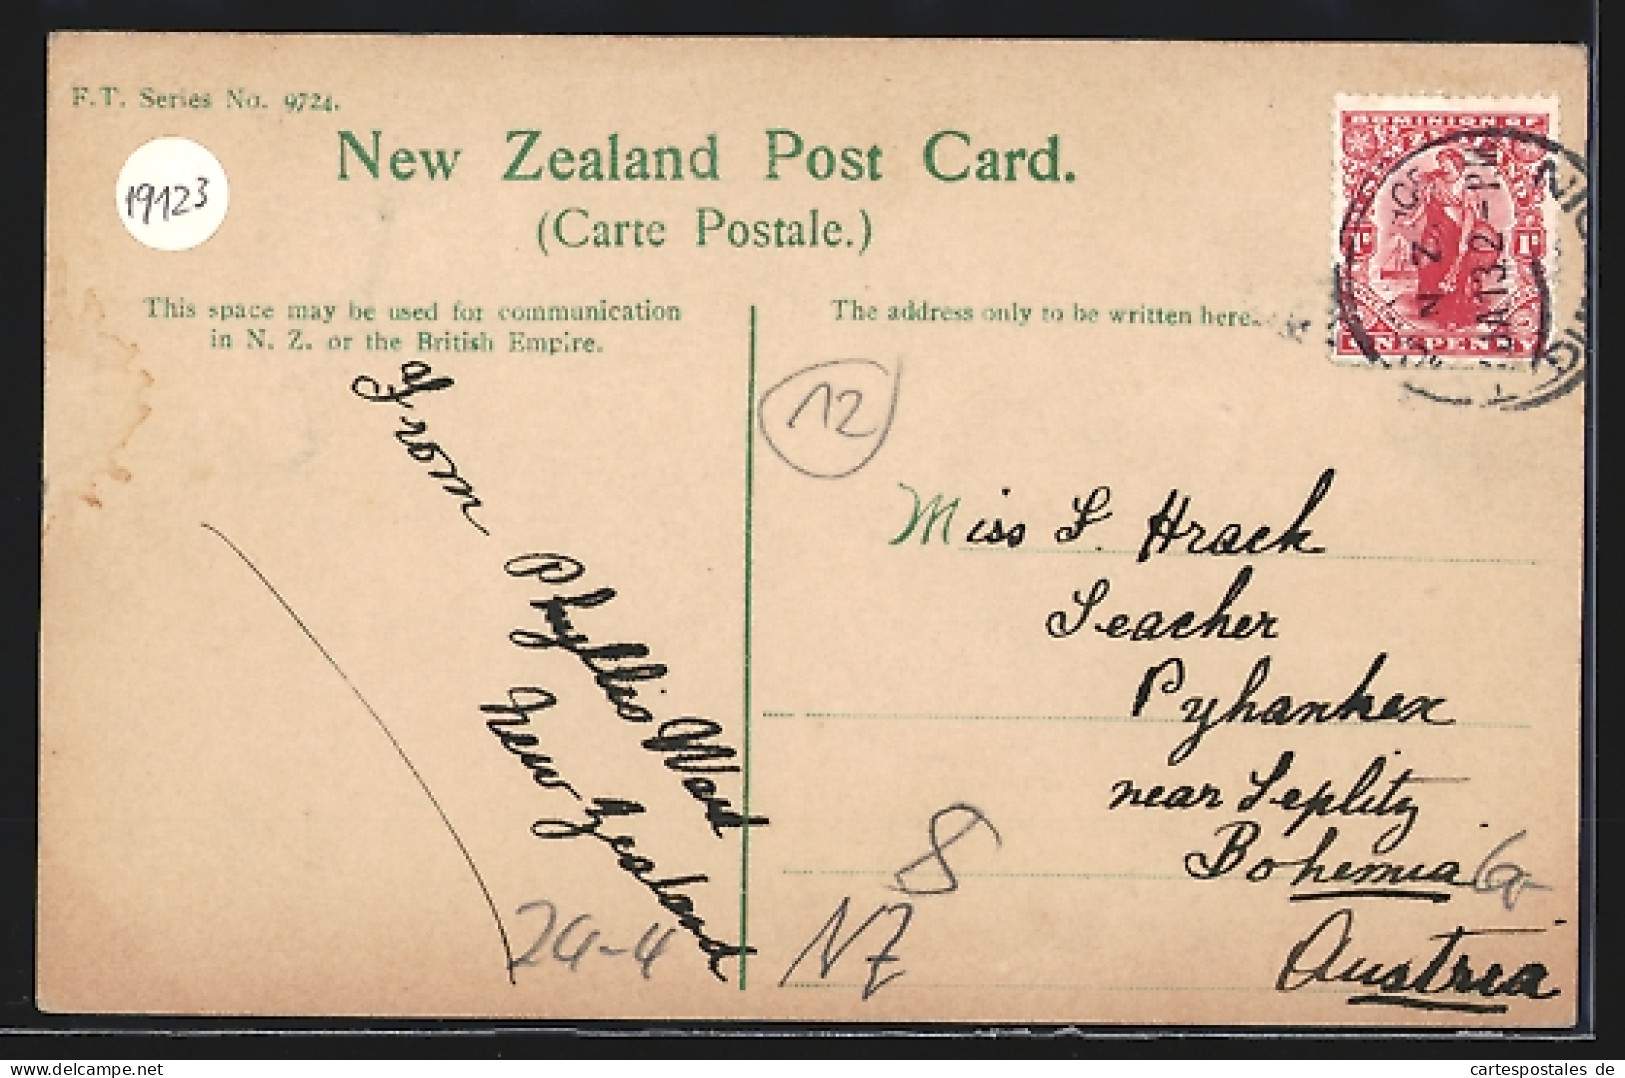 F.T. Series No. 9724.
New Zealand Post Card.
(Carte Postale.)
19123
This space may be used for communication
in N. Z. or the British Empire.
The address only to be written here.
DOMINION OF
ONE PENNY
2-PM
12
From
Phyllis Ward
New Zealand
Miss L. Hrach
Teacher
Pyhanken
near Teplitz
Bohemia
Austria
8
NZ
24-4
cartespostales de